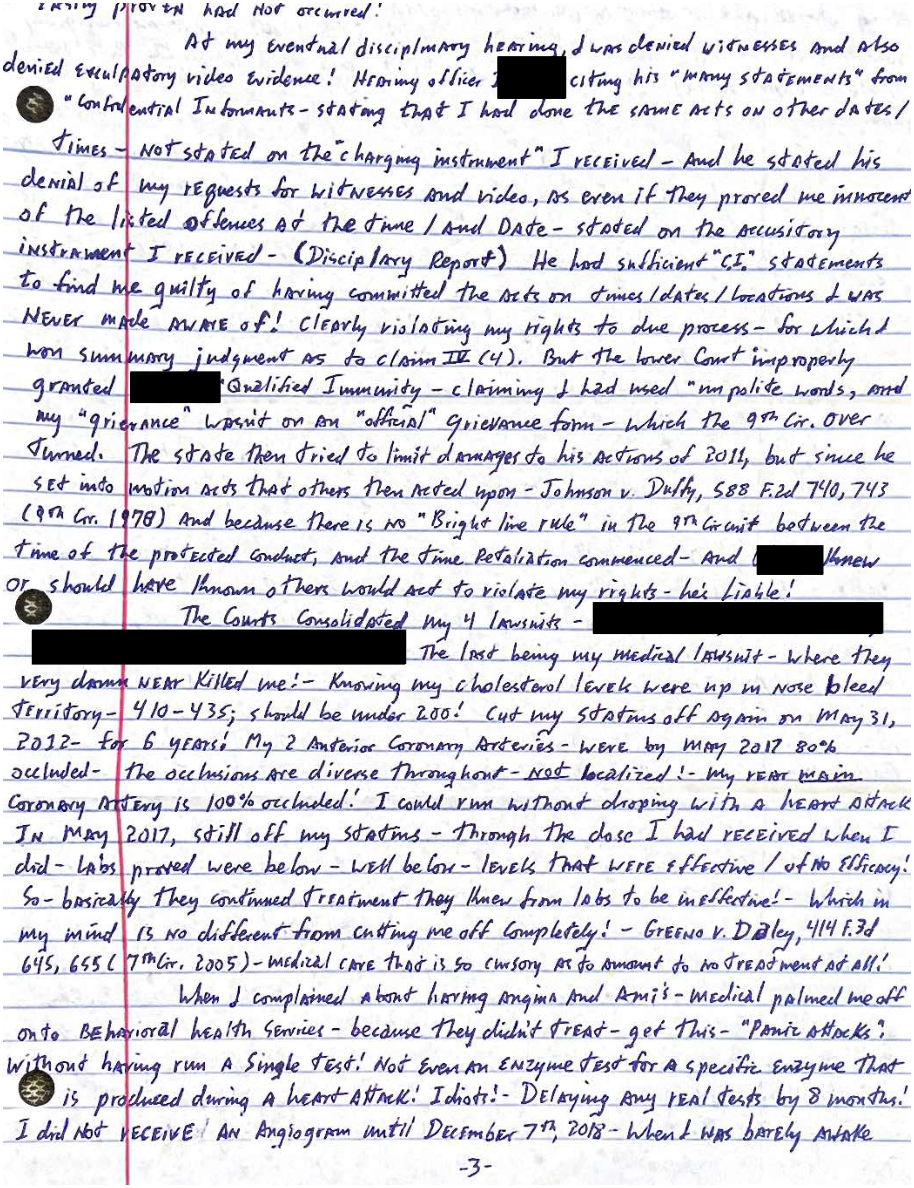 proven had not occurred!
At my eventual disciplinary hearing, I was denied witnesses and also
denied exculpatory video evidence! Hearing officer citing his "many statements" from
"Confidential Informants - stating that I had done the same acts on other dates/
times - not stated on the "charging instrument" I received - And he stated his
denial of my requests for witnesses and video, as even if they proved me innocent
of the listed offences at the time / and Date - stated on the accusitory
instrament I received - (Disciplary Report) He had sufficient "C.I." statements
to find me guilty of having committed the acts on times/dates/locations I was
NEVER made aware of! Clearly violating my rights to due process - for which I
won summary judgment as to claim IV (4). But the lower Court improperly
granted Qualified Immunity - claiming I had used "impolite words, and
my "grievance" wasn't on an "official" Grievance form - which the 9th Cir. over
turned. The state then tried to limit damages to his actions of 2011, but since he
set into motion acts that others then acted upon - Johnson v. Duffy, 588 F.2d 740, 743
(9th Cir. 1978) And because there is no "Bright line rule" in the 9th Circuit between the
time of the protected conduct, and the time Retaliation commenced - and knew
or should have known others would act to violate my rights - he's liable!
The Courts Consolidated my 4 lawsuits -
The last being my medical lawsuit - where they
very damn near killed me! - Knowing my cholesterol levels were up in nose bleed
territory - 410-435; should be under 200! Cut my statins off again on May 31,
2012 - for 6 years! My 2 Anterior Coronary Arteries - were by May 2017 80%
occluded - the occlusions are diverse throughout - not localized! - my rear main
Coronary Artery is 100% occluded! I could run without droping with a heart attack
In May 2017, still off my statins - through the dose I had received when I
did - labs proved were below - well below - levels that were effective / of no efficacy!
So - basically they continued treatment they knew from labs to be ineffective! - Which in
my mind is no different from cutting me off completely! - Greeno v. Daley, 414 F.3d
645, 655 (7th Cir. 2005) - medical care that is so cursory as to amount to no treatment at all!
When I complained about having angina and Ami's - medical palmed me off
onto Behavioral health services - because they didn't treat - get this - "Panic attacks".
Without having run a single test! Not even an enzyme test for a specific enzyme that
is produced during a heart attack! Idiots! - Delaying any real tests by 8 months!
I did not receive an Angiogram until December 7th, 2018 - when I was barely awake
-3-